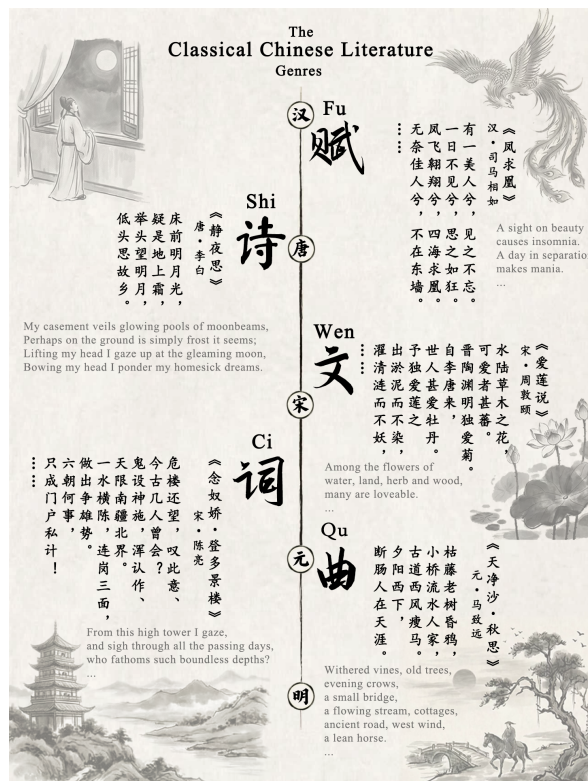 The
Classical Chinese Literature
Genres
汉
Fu
赋
《凤求凰》
汉·司马相如
有一美人兮，见之不忘。
一日不见兮，思之如狂。
凤飞翱翔兮，四海求凰。
无奈佳人兮，不在东墙。
……
A sight on beauty
causes insomnia.
A day in separatio
makes mania.
...
Shi
诗
唐
《静夜思》
唐·李白
床前明月光，
疑是地上霜，
举头望明月，
低头思故乡。
My casement veils glowing pools of moonbeams,
Perhaps on the ground is simply frost it seems;
Lifting my head I gaze up at the gleaming moon,
Bowing my head I ponder my homesick dreams.
Wen
文
《爱莲说》
宋·周敦颐
水陆草木之花，
可爱者甚蕃。
晋陶渊明独爱菊。
自李唐来，
世人甚爱牡丹。
予独爱莲之
出淤泥而不染，
濯清涟而不妖，
……
Among the flowers of
water, land, herb and wood,
many are loveable.
...
宋
Ci
词
《念奴娇·登多景楼》
宋·陈亮
危楼还望，叹此意、
今古几人曾会？
鬼设神施，浑认作、
天限南疆北界。
一水横陈，连岗三面，
做出争雄势。
六朝何事，
只成门户私计！
……
From this high tower I gaze,
and sigh through all the passing days,
who fathoms such boundless depths?
...
元
Qu
曲
《天净沙·秋思》
元·马致远
枯藤老树昏鸦，
小桥流水人家，
古道西风瘦马。
夕阳西下，
断肠人在天涯。
Withered vines, old trees,
evening crows,
a small bridge,
a flowing stream, cottages,
ancient road, west wind,
a lean horse.
...
明